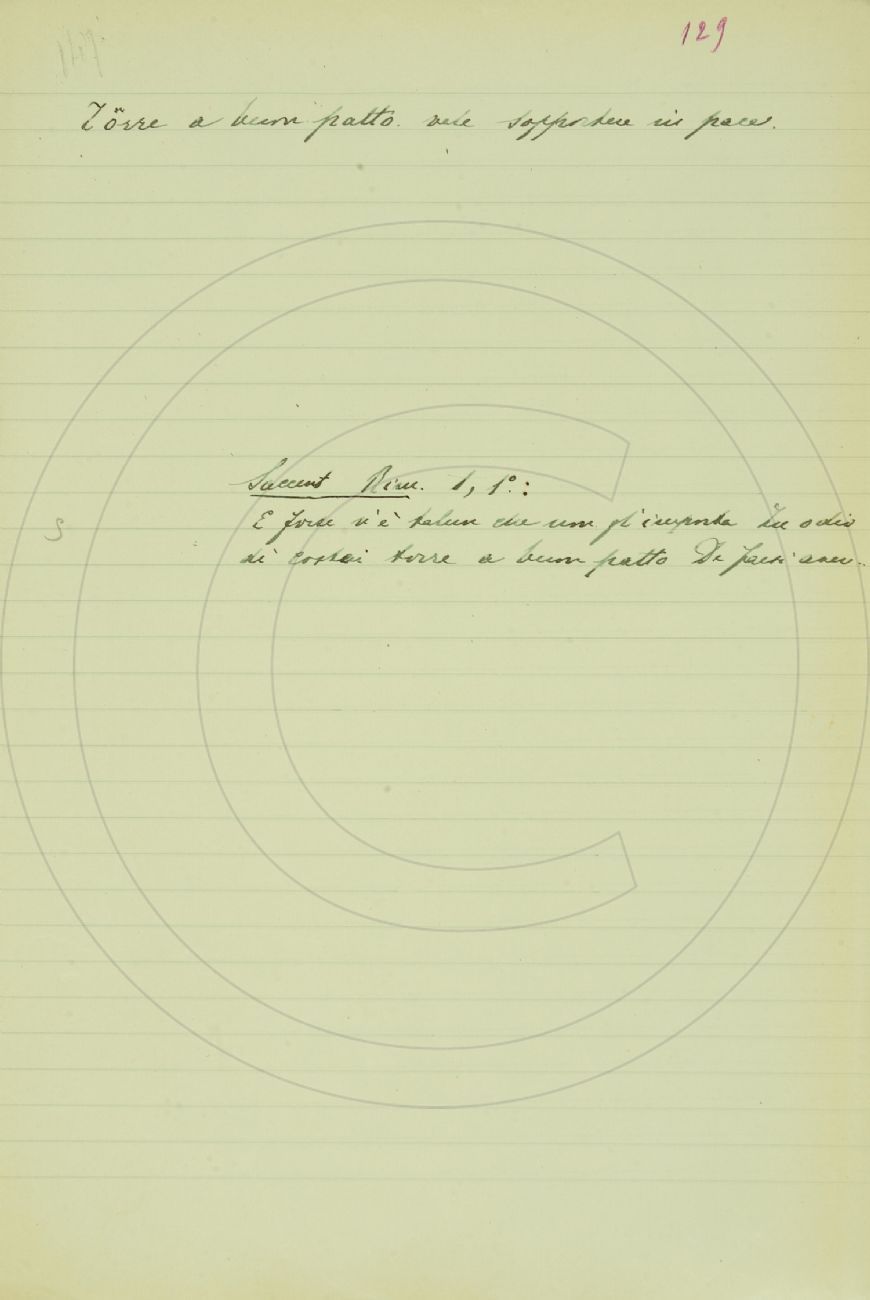 129
Törre a buon patto. vale sopportare in pace.
Saccent Rim. 1, 1°.:
E forse v'è talun che non gl'importa In odio
di costei torre a buon patto Di farsi aver..